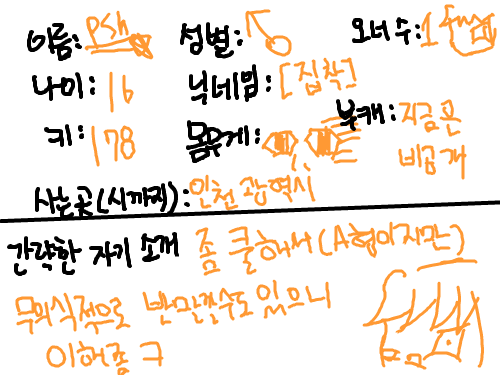 이름: PSh 성별: 오너 수: 1
나이: 16 닉네임: [집착]
키: 178 몸무게: 부캐: 지금은 비공개
사는곳(시까지): 인천 광역시
간략한 자기 소개 좀 쿨해서(A형이지만)
무의식적으로 반말깔수도 있으니
이허좀 ㅋ